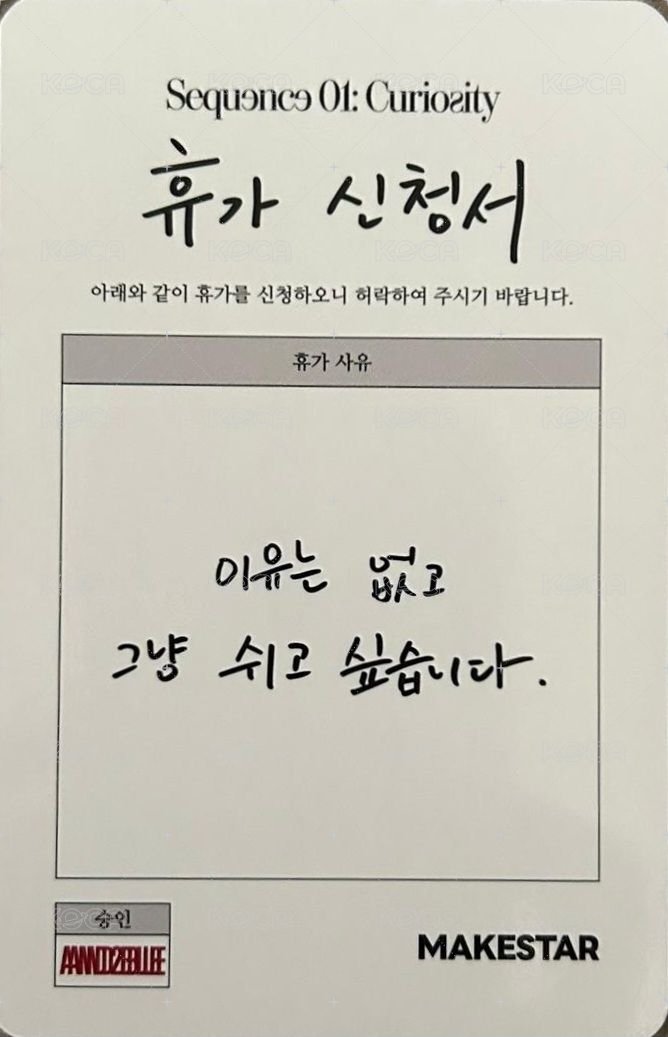 Sequence 01: Curiosity
휴가 신청서
아래와 같이 휴가를 신청하오니 허락하여 주시기 바랍니다.
휴가 사유
이유는 없고
그냥 쉬고 싶습니다.
승인
MAKESTAR